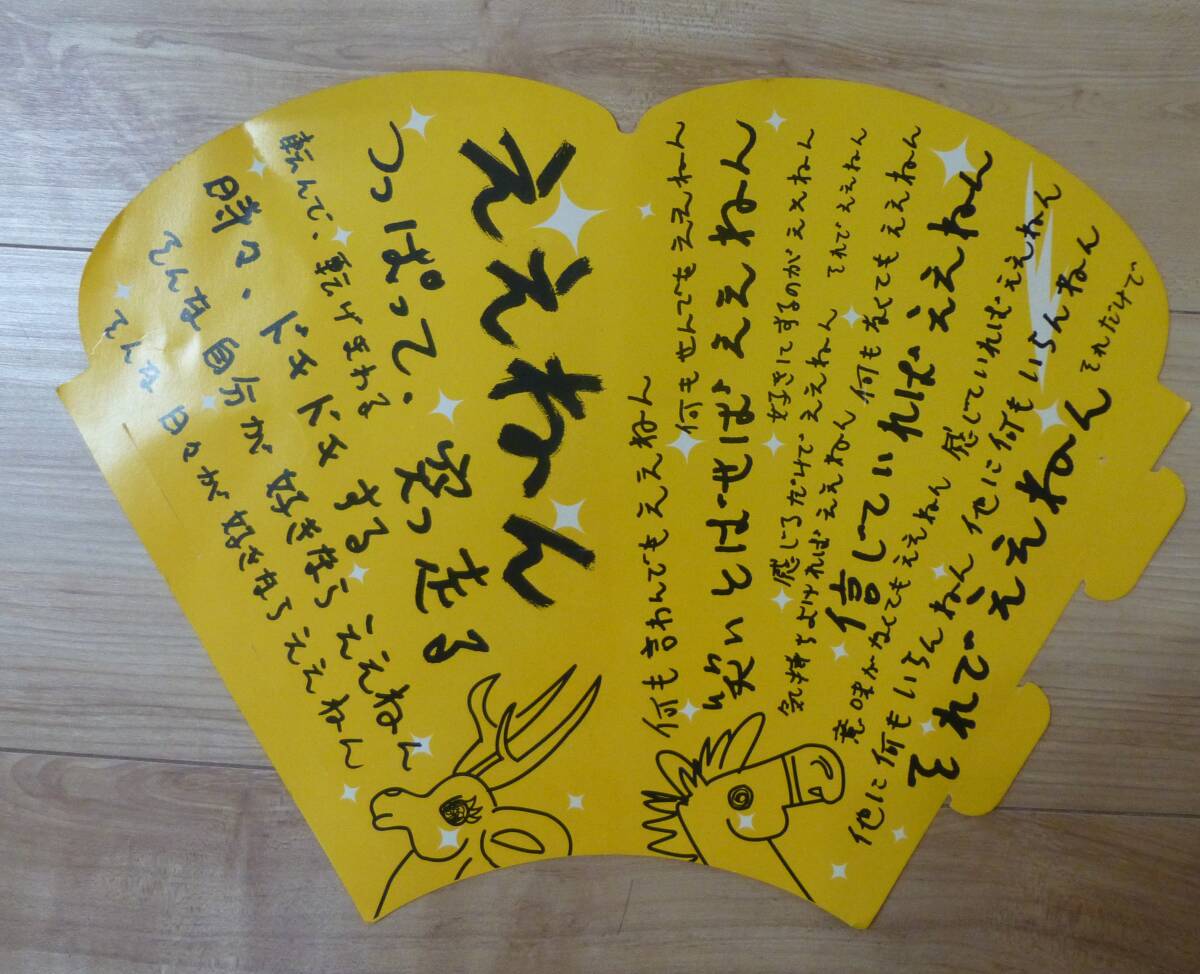 ええねん
つっぱって、突っ走る
転んで、転げまわる
時々、ドキドキする
そんな自分が好きならええねん
そんな日々が好きならええねん
何も言わんでもええねん 何もせんでもええねん
笑いとばせばええねん
好きにするのがええねん
感じるだけでええねん それでええねん
気持ちよければええねん 何も無くてもええねん
信じていればええねん
意味がなくてもええねん 感じていればええねん
他に何もいらんねん 他に何もいらんねん
それでええねん それだけで